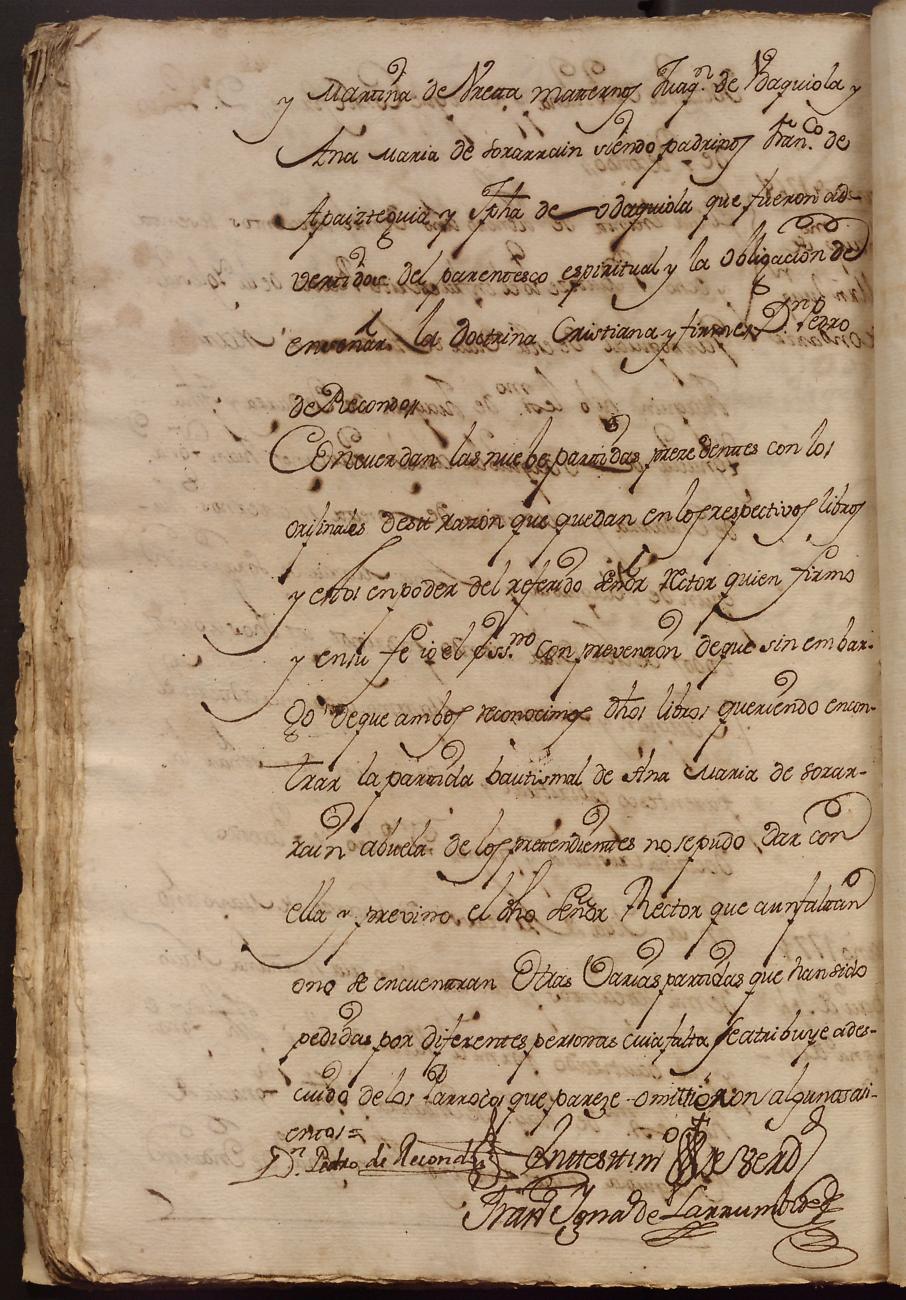 y Martina de Vreta maternos Juaqn. de Odaquiola y
Ana Maria de Sorarrain siendo padrinos Franco. de
Apaiztequia y Jpha de Odaquiola que fueron ad-
vertidos del parentesco espiritual y la obligacion de
enseñar la Doctrina Cristiana y firme Dn. Pedro
de Recondo
Concuerdan las nuebe partidas prezedentes con los
orijinales desu razon que quedan en los respectivos libros
y estos en poder del referido señor Rector quien firmo
y en su fe io el Essno. con prevenzion deque sin embar-
go deque ambos reconocimos dhos libros queriendo encon-
trar la partida bautismal de Ana Maria de Sorar-
rain abuela de los pretendientes no se pudo dar con
ella y previno el dho señor Rector que aun faltan
o no se encuentran otras varias partidas que han sido
pedidas por diferentes personas cuia falta se atribuye a des-
cuido de los Parrocos que pareze omitieron algunos asi-
entos=
Dn. Pedro de Recondo En testim o de Verd
Fran Igna de Larrumbide